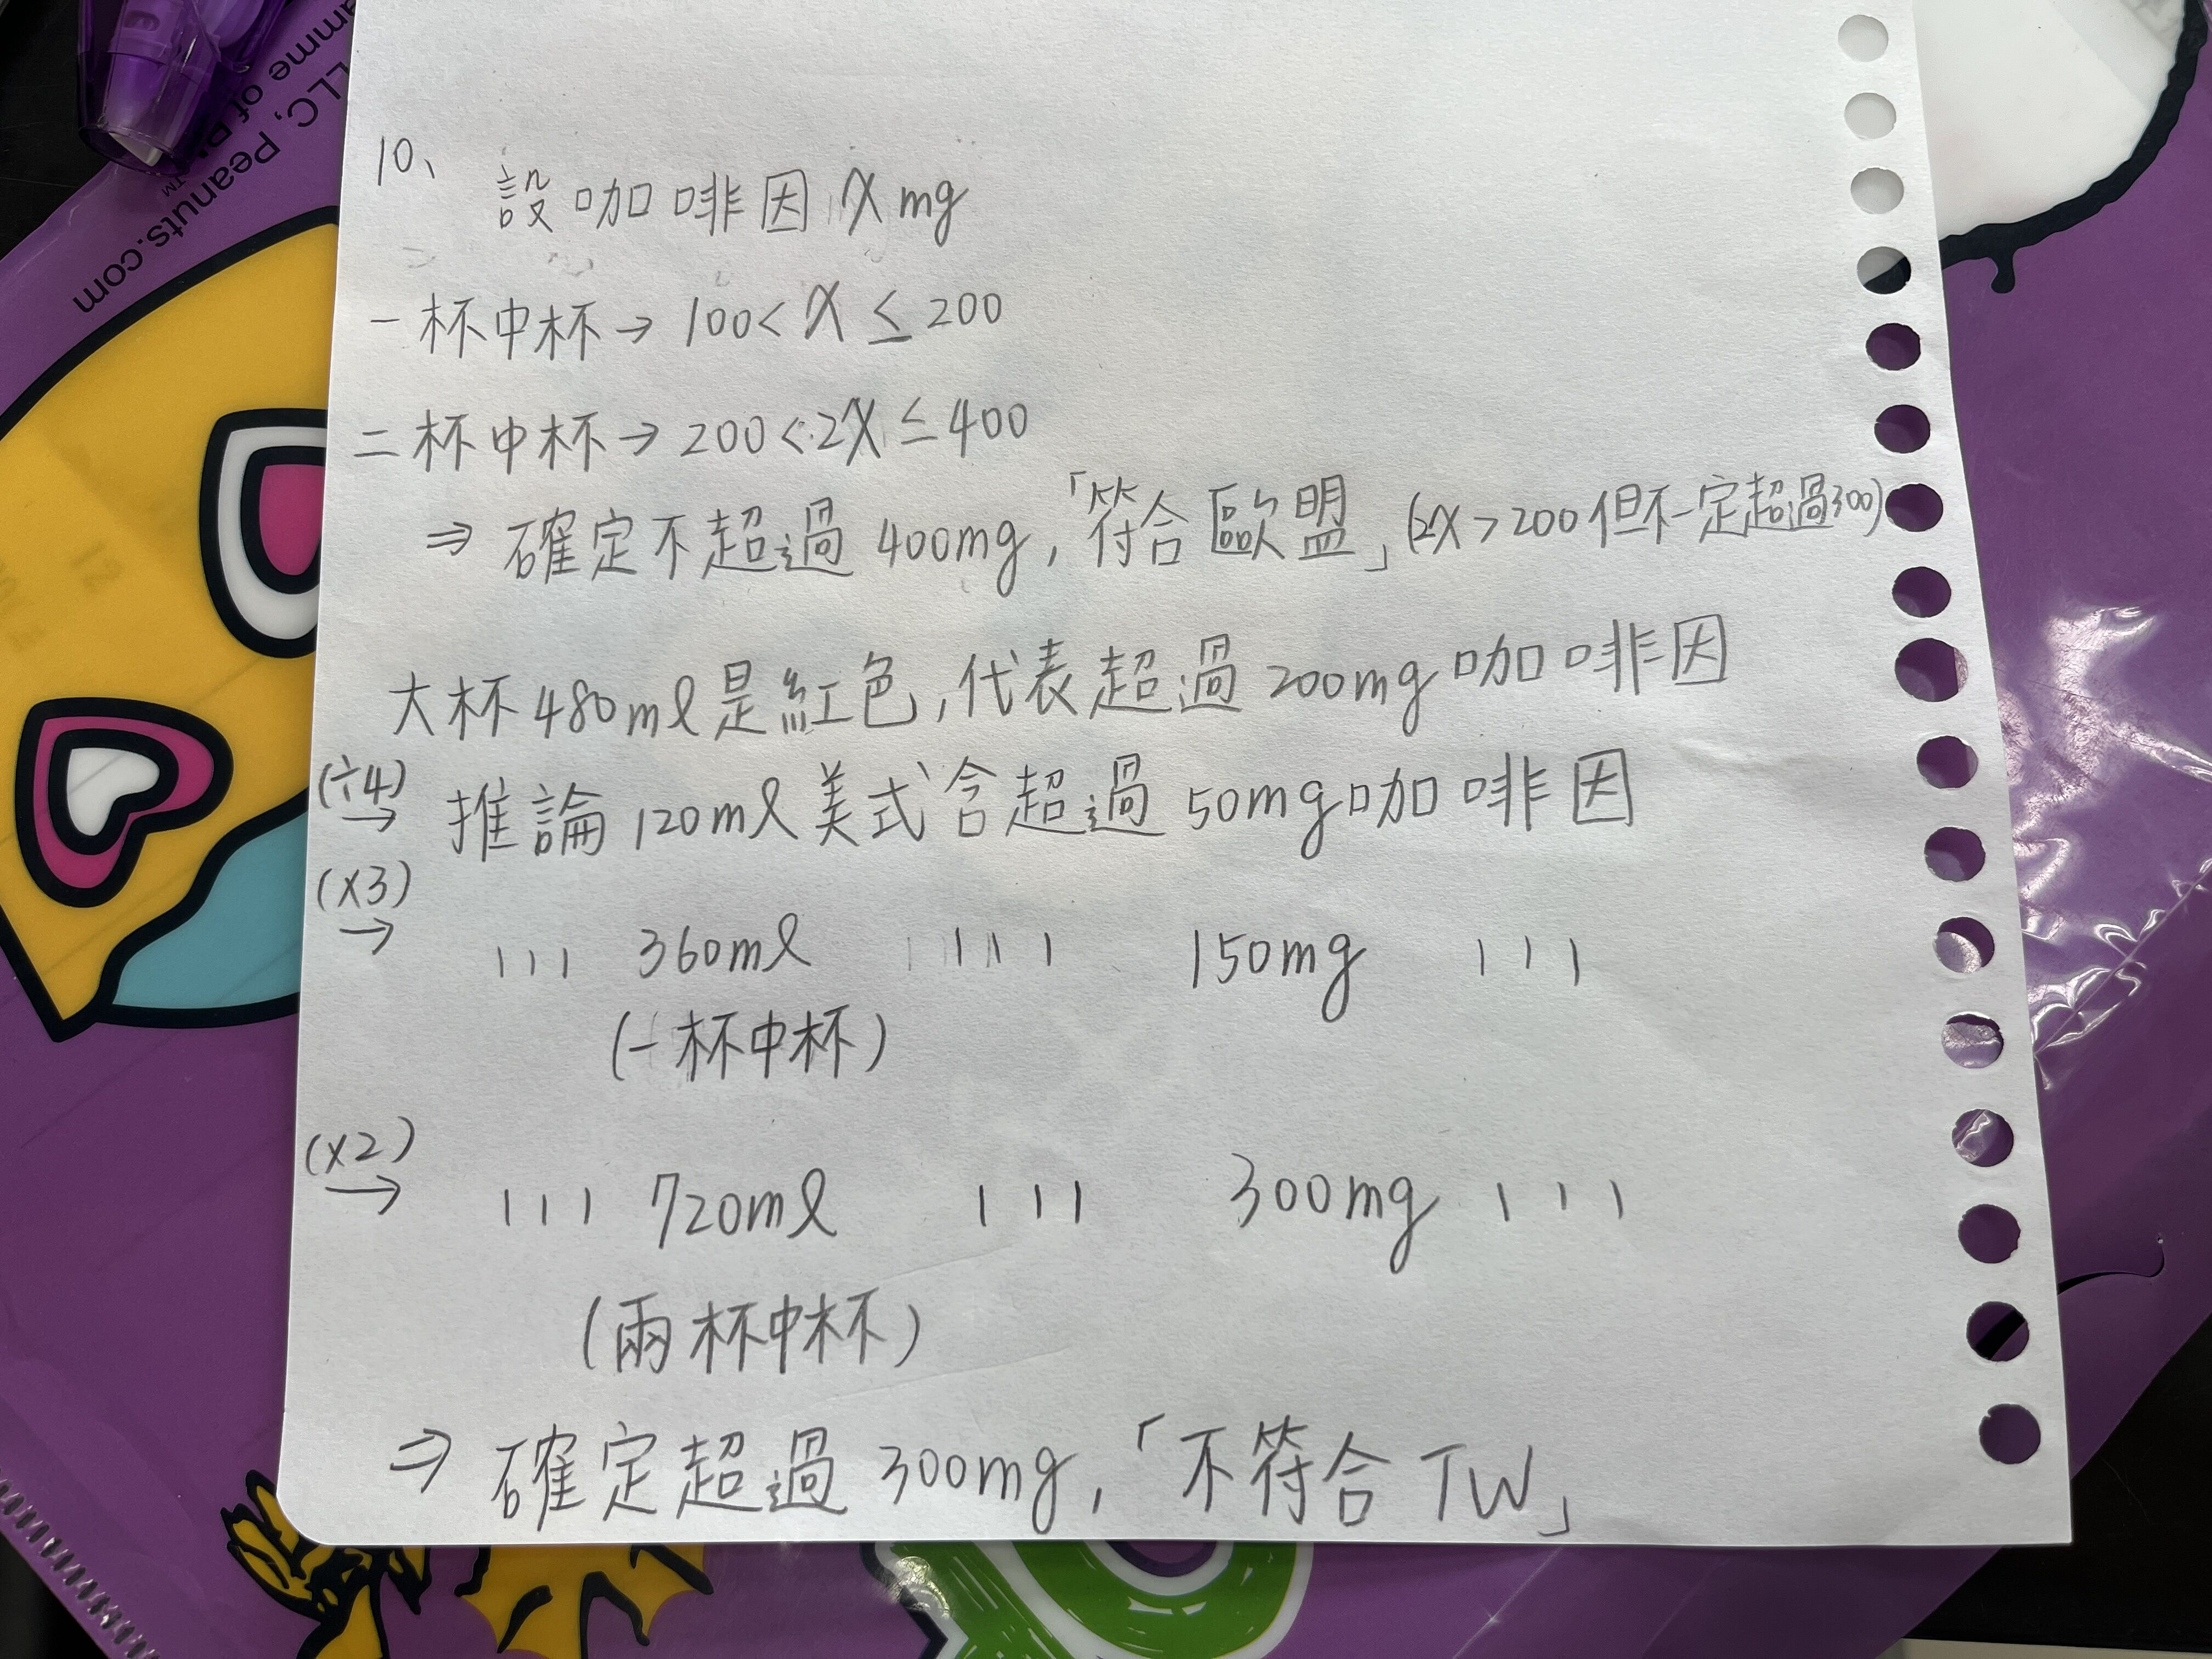 10、
設咖啡因 x mg
一杯中杯→ 100< x ≤ 200
二杯中杯→ 200<2x≤400
⇒ 確定不超過 400mg,「符合歐盟」(2x>200但不一定超過300)
大杯480ml是紅色,代表超過200mg咖啡因
(÷4)→ 推論120ml美式含超過50mg咖啡因
(x3)→ 〃 360ml 〃 150mg 〃
(一杯中杯)
(x2)→ 〃 720ml 〃 300mg 〃
(兩杯中杯)
⇒ 確定超過300mg,「不符合TW」
LLC, Peanuts™
Peanuts.com